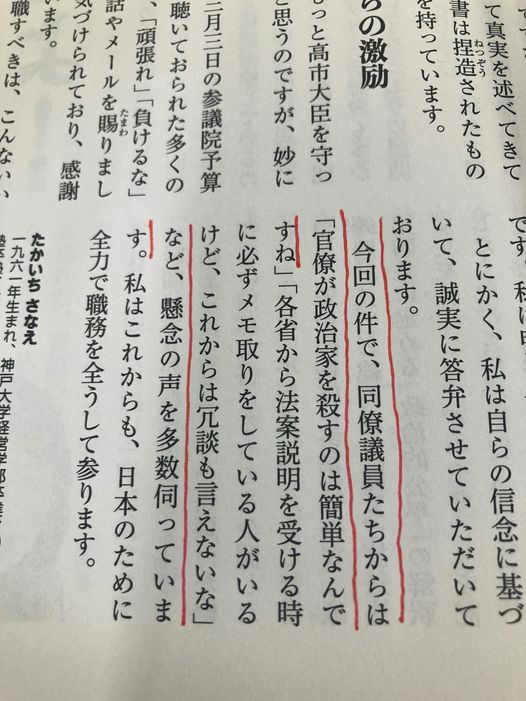 て真実を述べてきて
書は捏造されたもの
ねつぞう
を持っています。
らの激励
もっと高市大臣を守っ
と思うのですが、妙に
三月三日の参議院予算
聴いておられた多くの
「頑張れ」「負けるな」
話やメールを賜りまし
たまわ
気づけられており、感謝
います。
職すべきは、こんないい
とにかく、私は自らの信念に基づ
いて、誠実に答弁させていただいて
おります。
今回の件で、同僚議員たちからは
「官僚が政治家を殺すのは簡単なんで
すね」「各省から法案説明を受ける時
に必ずメモ取りをしている人がいる
けど、これからは冗談も言えないな」
など、懸念の声を多数伺っていま
す。私はこれからも、日本のために
全力で職務を全うして参ります。
たかいち さなえ
一九六一年生まれ、神戸大学経営学部卒業